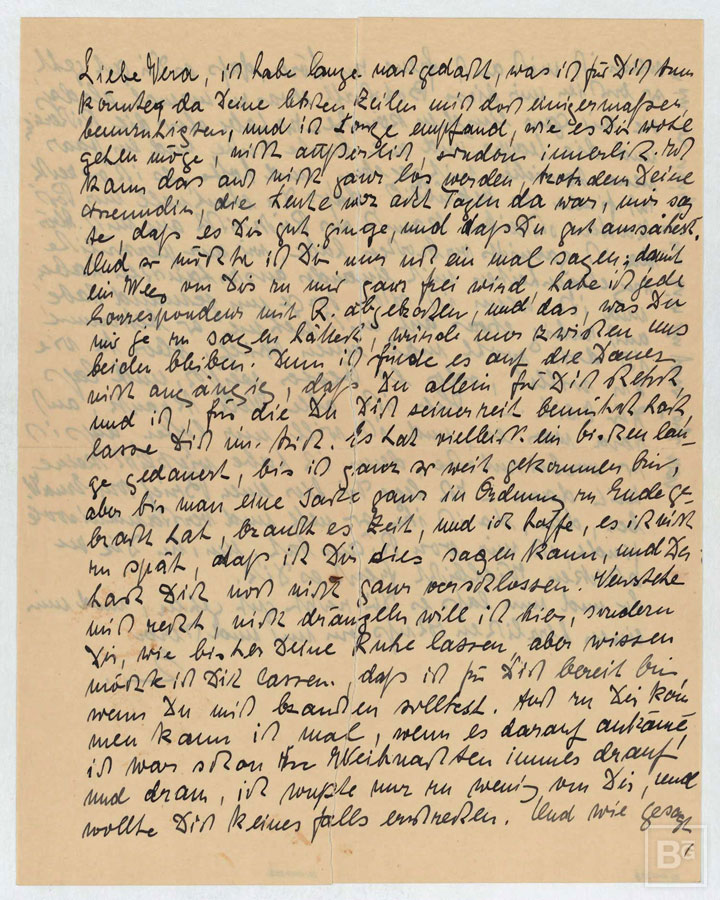 Liebe Vera, ich habe lange nachgedacht, was ich für Dich tun
könnte, da Deine letzten Zeilen mich doch einigermassen
beunruhigten, und ich Sorge empfand, wie es Dir wohl
gehen möge, nicht äußerlich, sondern innerlich. Ich
kann das auch nicht ganz los werden, trotzdem Deine
Freundin, die heute vor acht Tagen da war, mir sag
te, daß es Dir gut ginge, und daß Du gut aussähest.
Und so möchte ich Dir nur noch ein mal sagen: damit
ein Weg von Dir zu mir ganz frei wird, habe ich jede
Correspondenz mit R. abgebrochen, und das, was Du
mir je zu sagen hättest, würde nur zwischen uns
beiden bleiben. Denn ich finde es auf die Dauer
nicht angängig, daß Du allein für Dich stehst,
und ich, für die Du Dich seinerzeit bemüht hast,
lasse Dich im Stich. Es hat vielleicht ein bischen lan-
ge gedauert, bis ich ganz so weit gekommen bin,
aber bis man eine Sache ganz in Ordnung zu Ende ge-
bracht hat, braucht es Zeit, und ich hoffe, es ist nicht
zu spät, daß ich Dir dies sagen kann, und Du
hast Dich noch nicht ganz verschlossen. Verstehe
mich recht, nicht drängeln will ich hier, sondern
Dir, wie bisher Deine Ruhe lassen, aber wissen
möchte ich Dich lassen, daß ich für Dich bereit bin,
wenn Du mich brauchen solltest. Auch zu Dir kom
men kann ich mal, wenn es darauf ankäme,
ich war schon vor Weihnachten immer drauf
und dran, ich wußte nur zu wenig von Dir, und
wollte Dich keinesfalls erschrecken. Und wie gesagt